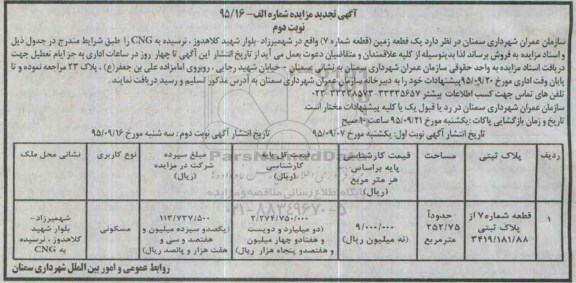 آگهی تجدید مزایده شماره الف- ۹۵/۱۶
نوبت دوم
سازمان عمران شهرداری سمنان در نظر دارد یک قطعه زمین (قطعه شماره ۷) واقع در شهمیرزاد- بلوار شهید کلاهدوز ، نرسیده به CNG را طبق شرایط مندرج در جدول ذیل
و اسناد مزایده به فروش برساند لذا بدینوسیله از کلیه علاقمندان و متقاضیان دعوت بعمل می آید از تاریخ انتشار این آگهی تا چهار روز در ساعات اداری به جز ایام تعطیل جهت
دریافت اسناد مزایده به واحد حقوقی سازمان عمران شهرداری سمنان به نشانی سمنان - خیابان شهید رجایی . روبروی امامزاده علی بن جعفر(ع) ، پلاک ۲۳ مراجعه نموده و تا
پایان وقت اداری مورخ ۹۵/۰۹/۲۰ پیشنهادات خود را به دبیرخانه سازمان عمران شهرداری سمنان به آدرس مذکور تسلیم و رسید دریافت نمایند.
تلفن های تماس جهت کسب اطلاعات بیشتر ۳۳۳۳۵۶۵۷-۳۳۳۳۸۵۷۳-۰۲۳
سازمان عمران شهرداری سمنان در رد یا قبول یک یا کلیه پیشنهادات مختار است.
تاریخ و زمان بازگشایی پاکات: یکشنبه مورخ ۹۵/۰۹/۲۱ ساعت ۱۰ صبح
تاریخ انتشار آگهی نوبت اول: یکشنبه مورخ ۹۵/۰۹/۰۷ تاریخ انتشار آگهی نوبت دوم: سه شنبه مورخ ۹۵/۰۹/۱۶
ردیف پلاک ثبتی مساحت قیمت کارشناسی پایه براساس هر متر مربع (ریال) قیمت کل پایه کارشناسی (ریال) مبلغ سپرده شرکت در مزایده (ریال) نوع کاربری نشانی محل ملک
۱ قطعه شماره ۷ از پلاک ثبتی ۳۴۱۹/۱۸۱/۸۸ حدوداً ۲۵۲/۷۵ مترمربع ۹/۰۰۰/۰۰۰ (نه میلیون ریال) ۲/۲۷۴/۷۵۰/۰۰۰ (دو میلیارد و دویست و هفتادو چهار میلیون و هفتصدو پنجاه هزار ریال) ۱۱۳/۷۳۷/۵۰۰ (یکصدو سیزده میلیون و هفتصد و سی و هفت هزار و پانصد ریال) مسکونی شهمیرزاد- بلوار شهید کلاهدوز ، نرسیده به CNG
روابط عمومی و امور بین الملل شهرداری سمنان
۰۲۱-۸۸۳۴۹۶۷۰-۵